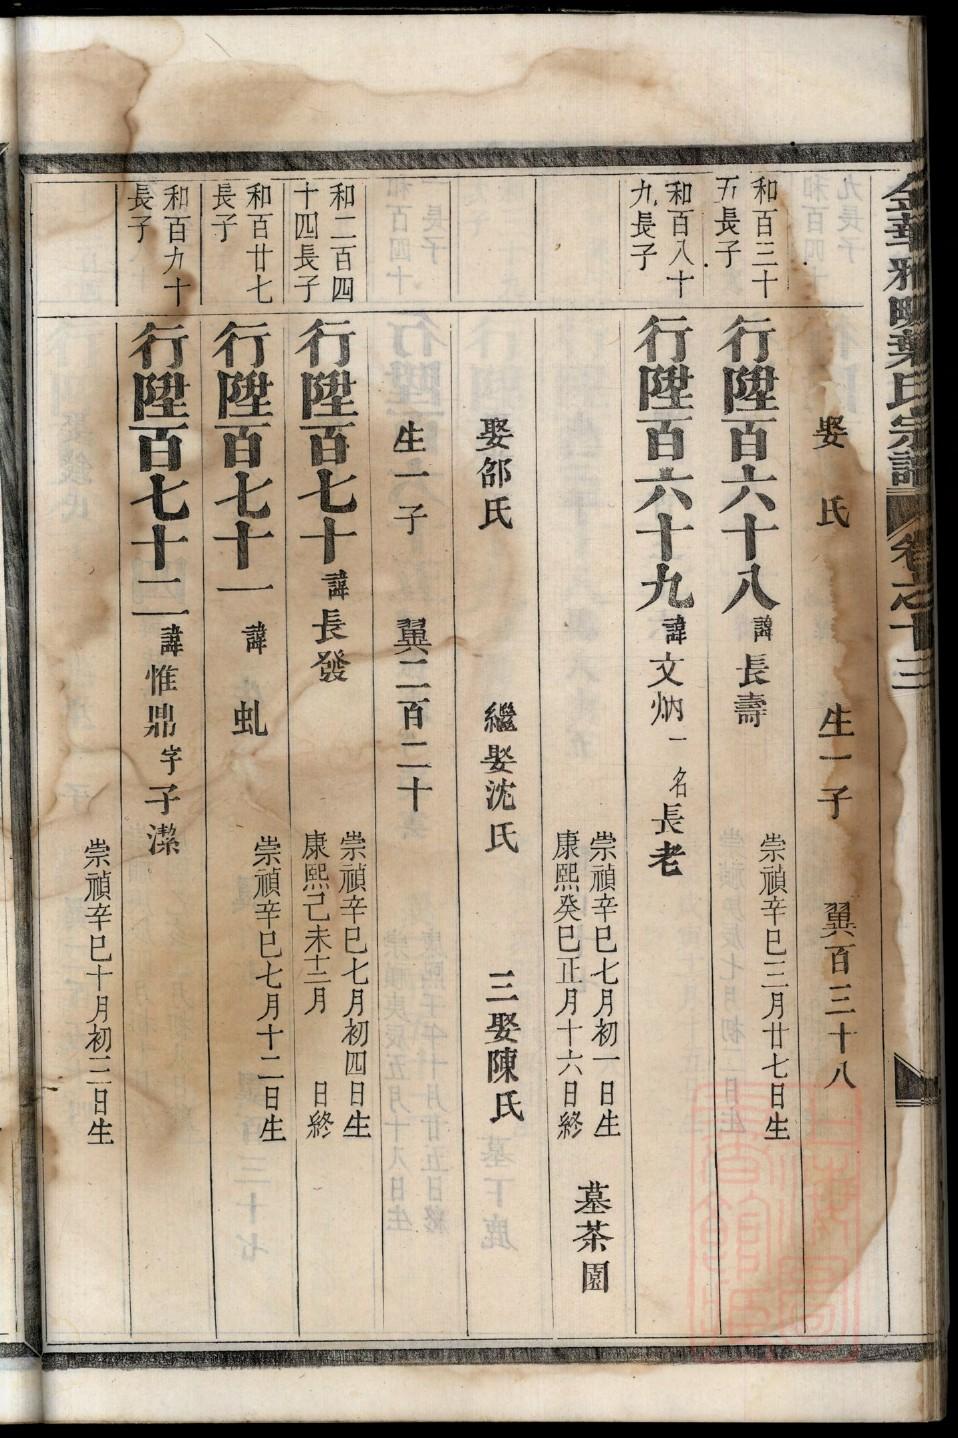 金華雅畈葉氏宗譜 卷之十三
娶 氏 生一子 翼百三十八
和百三十
五長子
行陞百六十八 諱長壽
崇禎辛巳三月廿七日生
和百八十
九長子
行陞百六十九 諱文炳 一名長老
崇禎辛巳七月初一日生
康熙癸巳正月十六日終
墓茶園
娶邰氏 繼娶沈氏 三娶陳氏
生一子 翼二百二十
和二百四
十四長子
行陞百七十 諱長發
崇禎辛巳七月初四日生
康熙己未十二月 日終
和百廿七
長子
行陞百七十一 諱 虬
崇禎辛巳七月十二日生
和百九十
長子
行陞百七十二 諱惟鼎 字子潔
崇禎辛巳十月初三日生